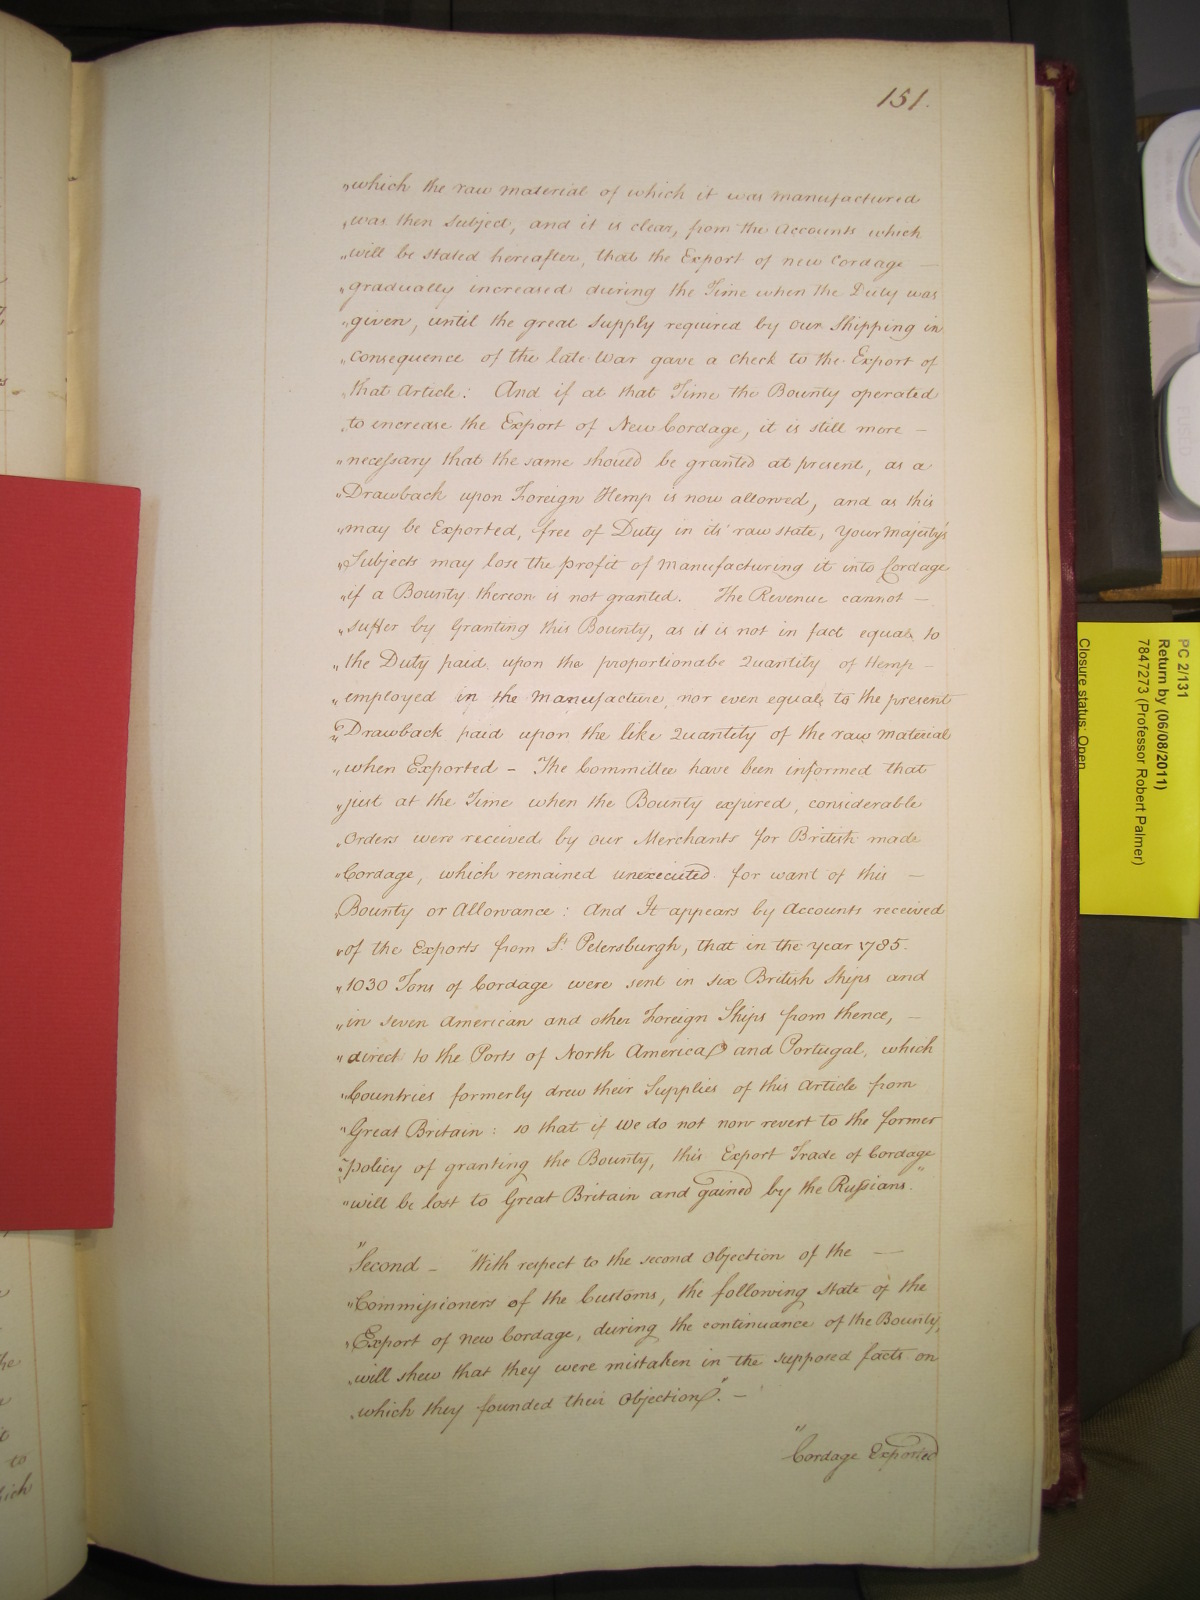 151.
"which the raw material of which it was manufactured
"was then subject, and it is clear, from the Accounts which
"will be stated hereafter, that the Export of new Cordage —
"gradually increased during the Time when the Duty was
"given, until the great supply required by our Shipping in
"consequence of the late War gave a check to the Export of
"that Article: And if at that Time the Bounty operated
"to increase the Export of New Cordage, it is still more —
"necessary that the same should be granted at present, as a
"Drawback upon Foreign Hemp is now allowed, and as this
"may be Exported, free of Duty in its' raw state, Your Majesty's
"Subjects may lose the profit of manufacturing it into Cordage
"if a Bounty thereon is not granted. The Revenue cannot —
"suffer by Granting this Bounty, as it is not in fact equal to
"the Duty paid upon the proportionabe Quantity of Hemp —
"employed in the Manufacture, nor even equal to the present
"Drawback paid upon the like Quantity of the raw material
"when Exported – The Committee have been informed that
"just at the Time when the Bounty expired, considerable
"Orders were received by our Merchants for British made
"Cordage, which remained unexecuted for want of this —
"Bounty or Allowance: And It appears by Accounts received
"of the Exports from St Petersburgh, that in the year 1785.
"1030 Tons of Cordage were sent in six British Ships and
"in seven American and other Foreign Ships from thence, —
"direct to the Ports of North America and Portugal, which
"Countries formerly drew their Supplies of this Article from
"Great Britain: so that if We do not now revert to the former
"policy of granting the Bounty, this Export Trade of Cordage
"will be lost to Great Britain and gained by the Russians."
"Second – "With respect to the second Objection of the —
"Commissioners of the Customs, the following State of the
"Export of new Cordage, during the continuance of the Bounty,
"will shew that they were mistaken in the supposed facts on
"which they founded their Objection". –
"Cordage Exported
PC 2/131
Return by (06/08/2011)
7847273 (Professor Robert Palmer)
Closure status: Open
he
to
hich